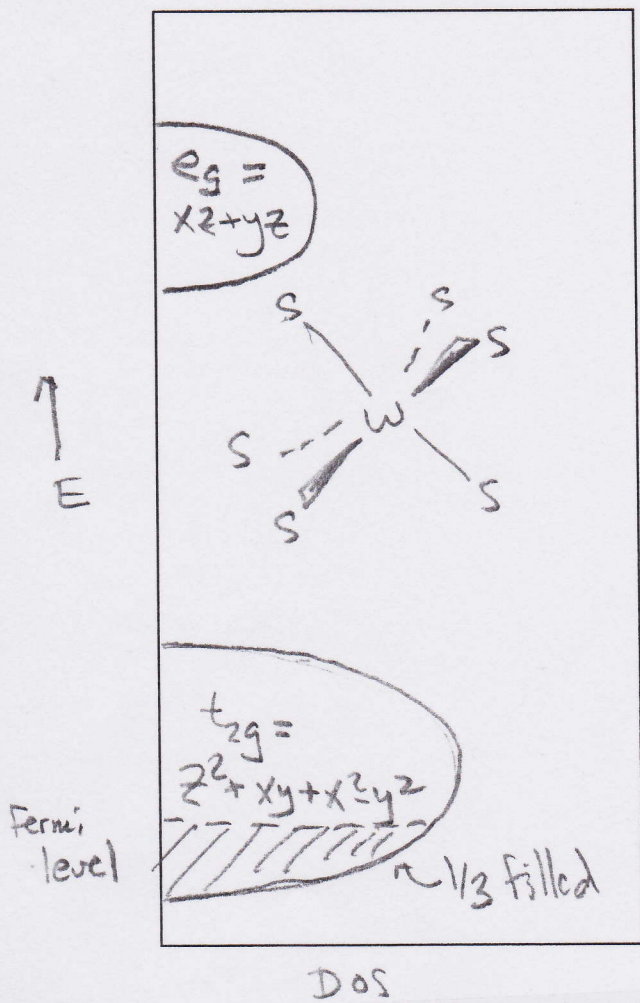 eg =
xz+yz
S
S
S
W
S
S
S
↑
E
t2g =
z²+xy+x²-y²
Fermi
level
~1/3 filled
DOS